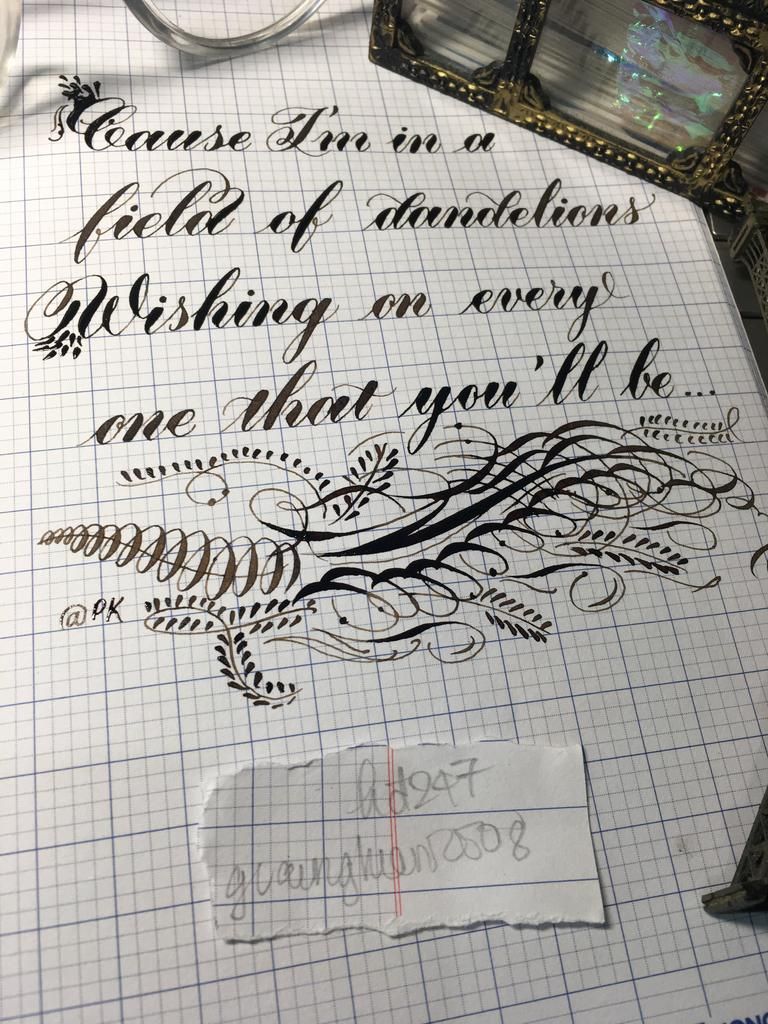 Cause I'm in a
field of dandelions
Wishing on every
one that you'll be...
@PK